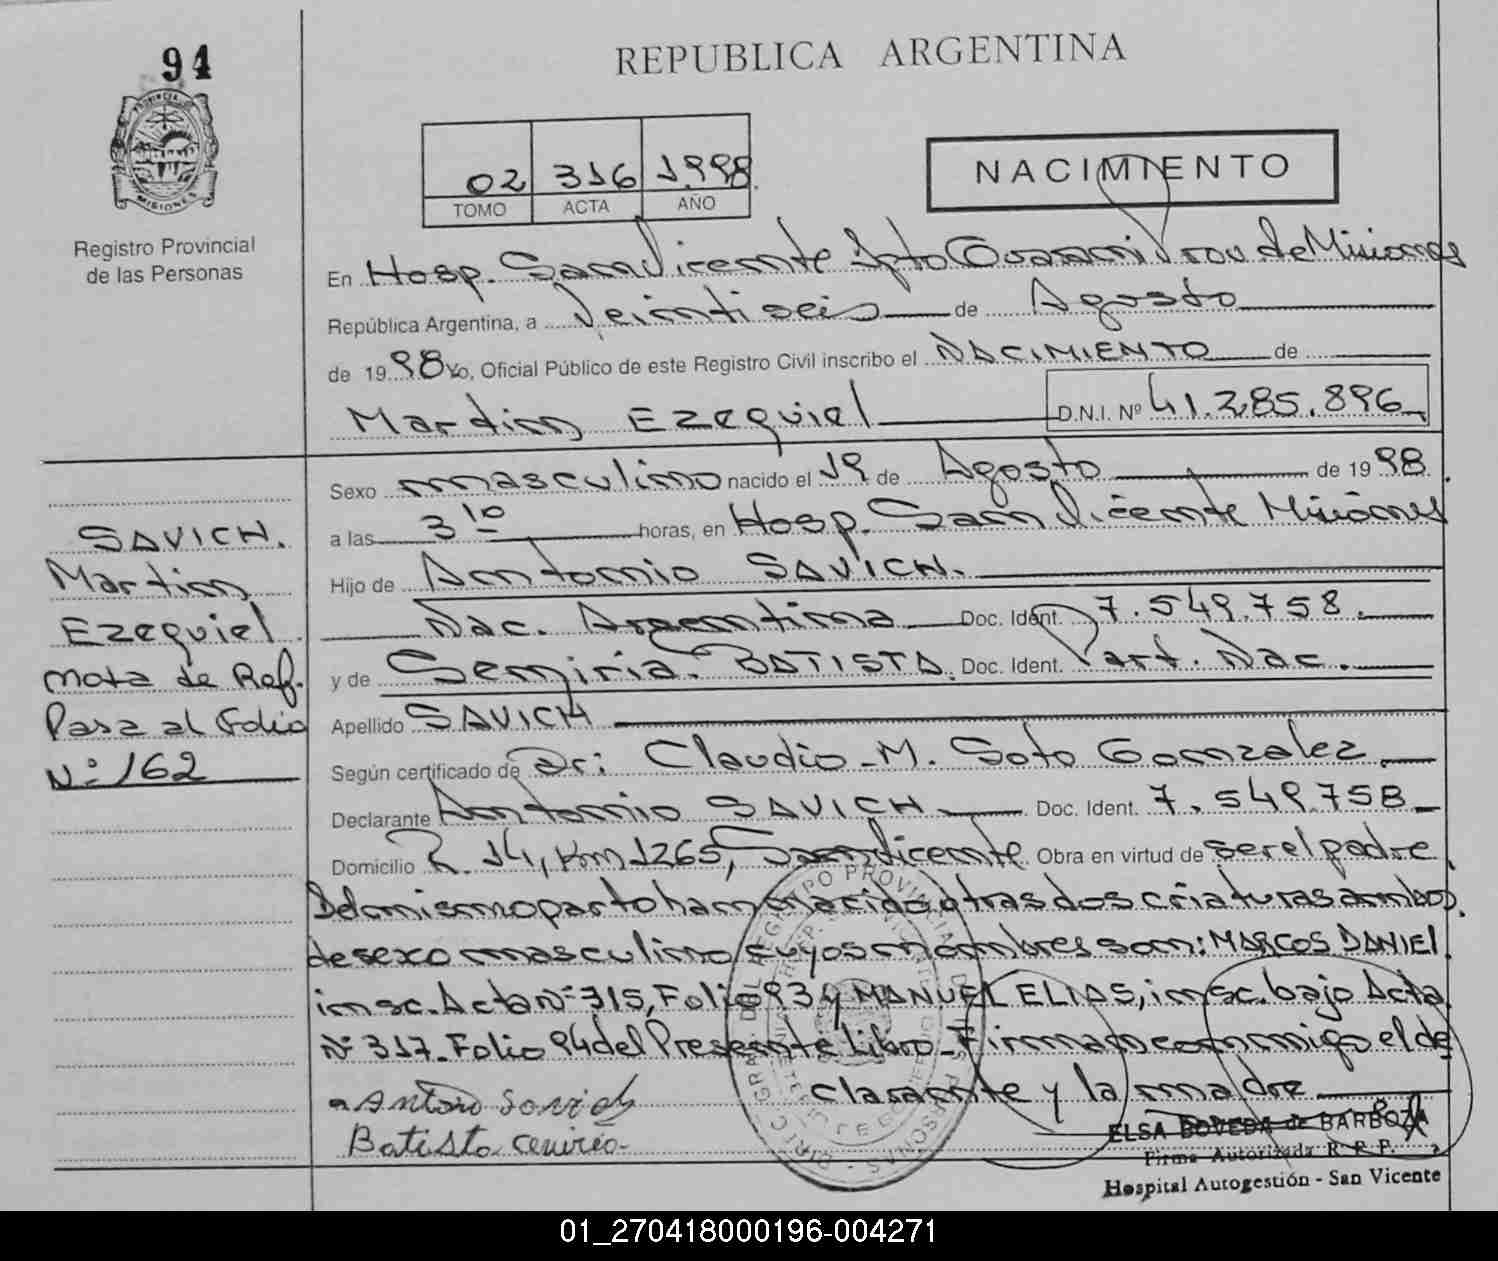 94
REPUBLICA ARGENTINA
PROVINCIA DE
MISIONES
Registro Provincial
de las Personas
02 316 1998
TOMO ACTA AÑO
NACIMIENTO
En Hosp. San Vicente Dpto Guarani Prov de Misiones
República Argentina, a Veinti seis de Agosto
de 1998 Yo, Oficial Público de este Registro Civil inscribo el NACIMIENTO de
Martin EZEQUIEL D.N.I. Nº 41.285.896
Sexo masculino nacido el 19 de Agosto de 1998.
a las 3 10 horas, en Hosp. San Vicente Misiones
Hijo de Antonio SAVICH.
Nac. Argentina Doc. Ident. 7.549.758.
y de Semiria BATISTA. Doc. Ident. Part. Nac.
Apellido SAVICH
Según certificado de Dr: Claudio M. Soto Gonzalez
Declarante Antonio SAVICH Doc. Ident. 7.549.758
Domicilio R. 14, Km 1265, San Vicente Obra en virtud de ser el padre.
Del mismo parto han nacido otras dos criaturas ambos
de sexo masculino cuyos nombres son: MARCOS DANIEL
insc. Acta Nº 315, Folio 93 y MANUEL ELIAS, insc. bajo Acta
Nº 317. Folio 94 del Presente Libro - Firman conmigo el de
clarante y la madre
SAVICH.
Martin
EZEQUIEL
nota de Ref.
Pasa al Folio
Nº 162
Antonio Savich
Batista Cemiria
ELSA BOVEDA de BARBOZA
Firma Autorizada R. P. P.
Hospital Autogestión - San Vicente
01_270418000196-004271